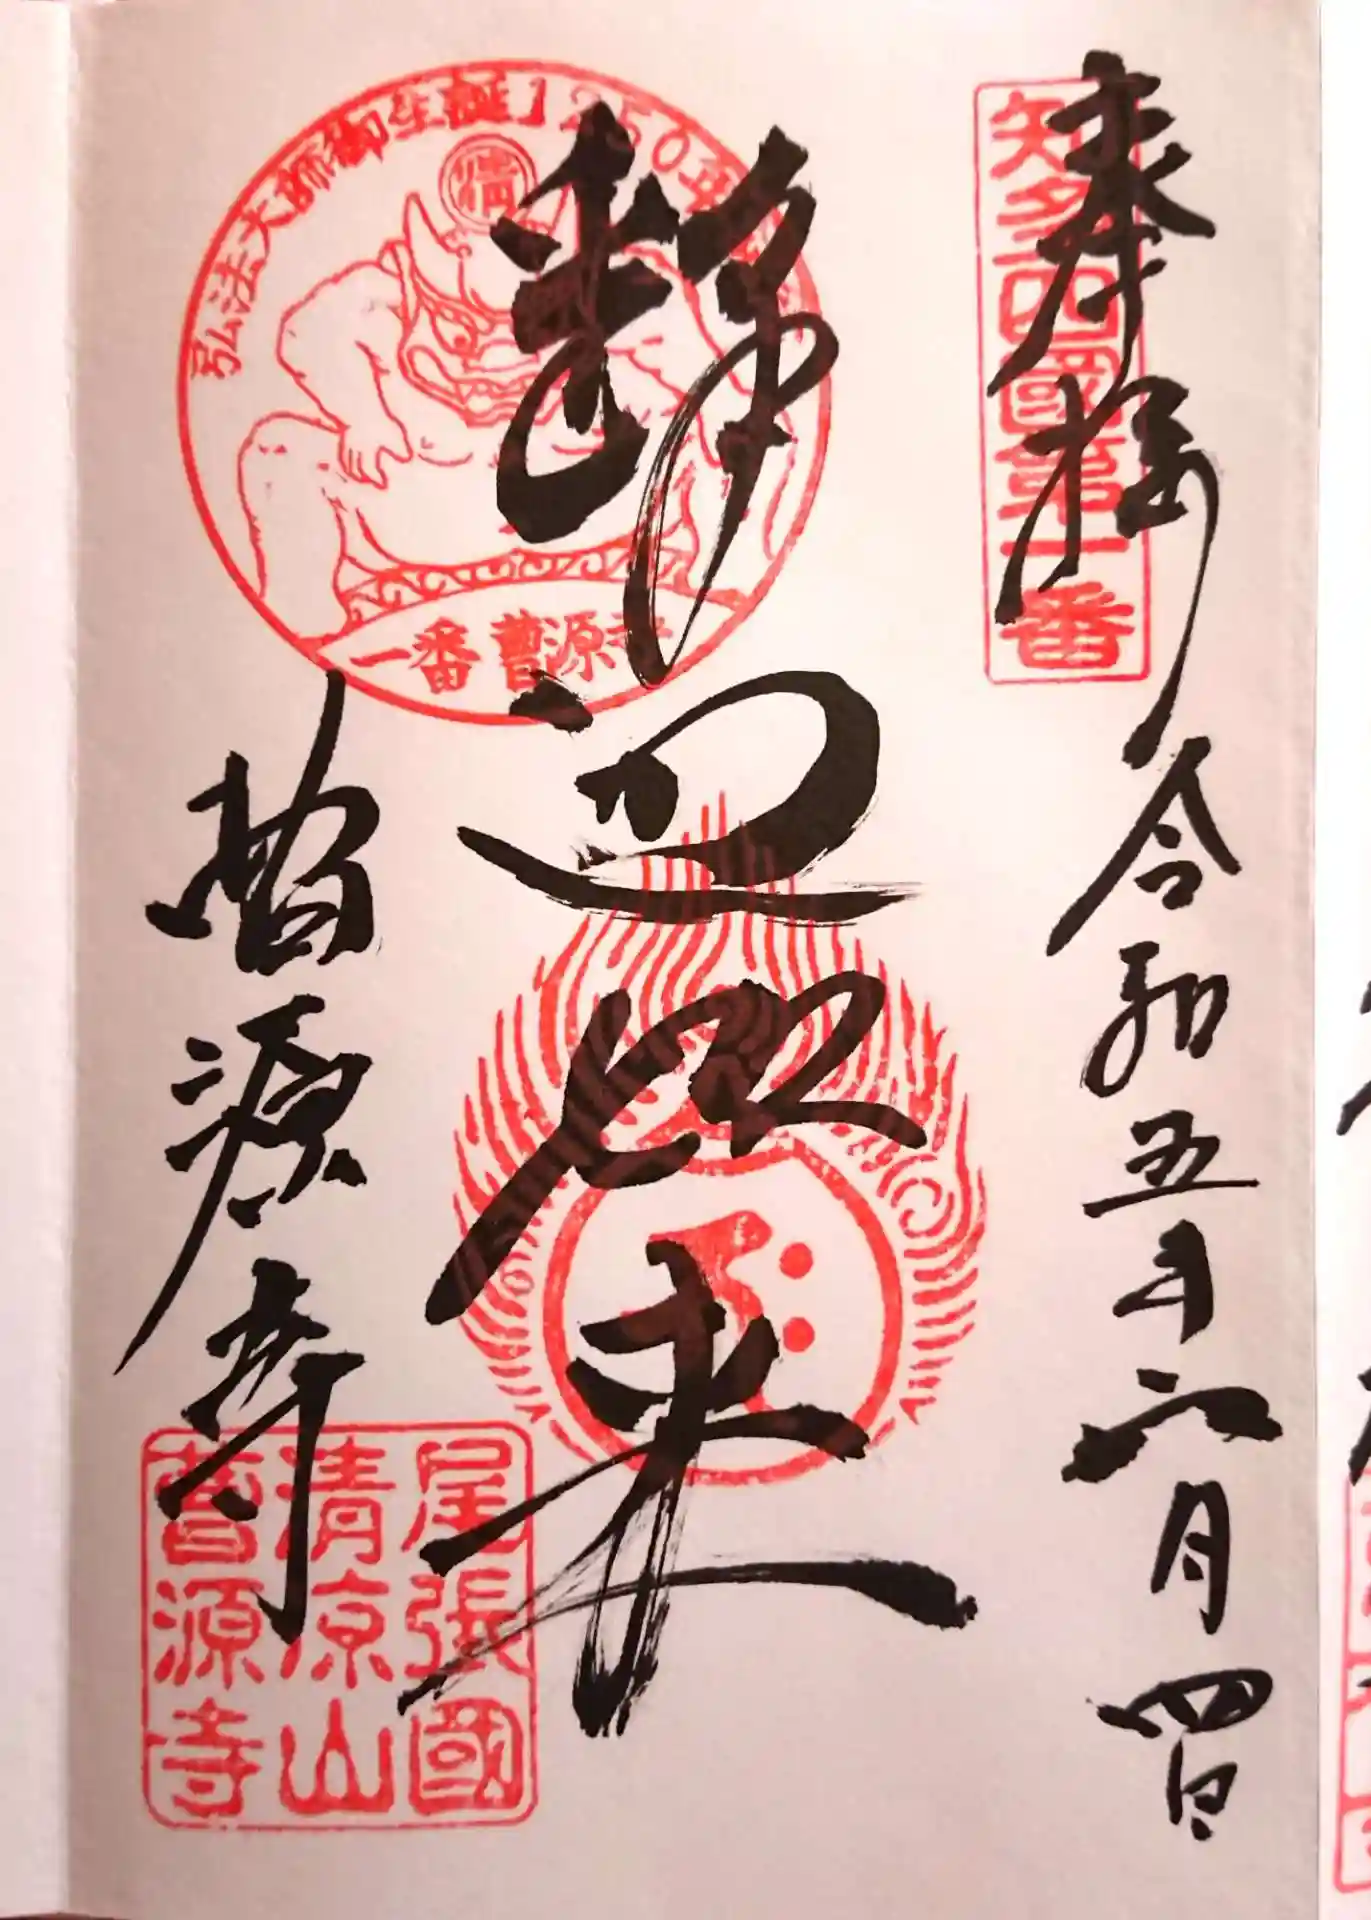 奉拝
令和五年六月四日
知多四國第一番
釈迦如来
弘法大師御生誕1250年
清
一番 曹源寺
曹源寺
尾張國
清凉山
曹源寺